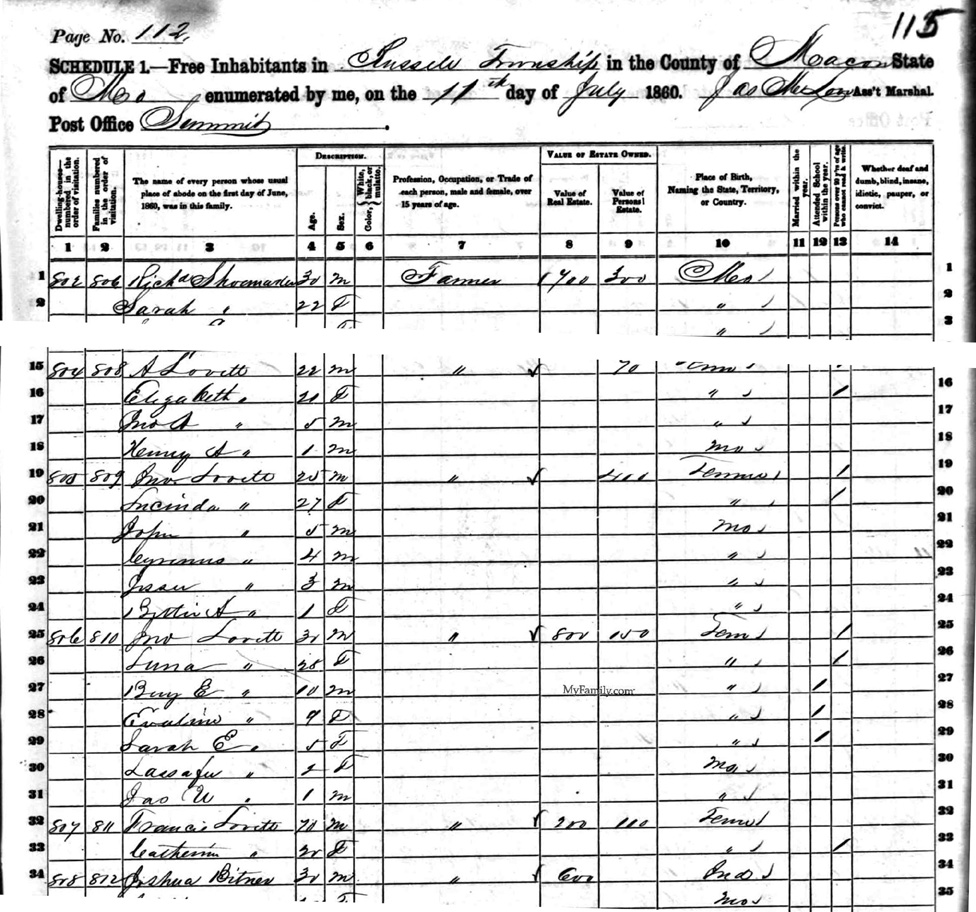 115
Page No. 112.
SCHEDULE 1.—Free Inhabitants in Russell Township in the County of Macon State
of Mo enumerated by me, on the 11th day of July 1860. Jas Ass't Marshal.
Post Office Summit.
DESCRIPTION. VALUE OF ESTATE OWNED.
Dwelling-houses—numbered in the order of visitation. Families numbered in the order of visitation. The name of every person whose usual place of abode on the first day of June, 1860, was in this family. Age. Sex. Color, {White, black, or mulatto. Profession, Occupation, or Trade of each person, male and female, over 15 years of age. Value of Real Estate. Value of Personal Estate. Place of Birth, Naming the State, Territory, or Country. Married within the year. Attended School within the year. Persons over 20 y'rs of age who cannot read & write. Whether deaf and dumb, blind, insane, idiotic, pauper, or convict.
1 2 3 4 5 6 7 8 9 10 11 12 13 14
1 802 806 Richd Shoemaker 30 m Farmer 1700 300 Mo 1
2 Sarah " 22 F " 2
" 3
15 804 808 A Lovett 22 m " 70
16 Elizabeth " 21 F " / 16
17 Jno A " 5 m " 17
18 Henry A " 1 m Mo 18
19 805 809 Jno Lovett 25 m " 400 Tenn / 19
20 Lucinda " 27 F " / 20
21 John " 5 m Mo 21
22 " 4 m " 22
23 Jesse " 3 m " 23
24 A " 1 F " 24
25 806 810 Jno Lovett 30 m " 800 150 Tenn / 25
26 Luna " 28 F " / 26
27 Benj E " 10 m " / 27
MyFamily.com
28 Evaline " 9 F " / 28
29 Sarah E " 5 F " / 29
30 " 2 F Mo 30
31 Jas W " 1 m " 31
32 807 811 Francis Lovett 70 m " 200 110 Tenn 32
33 Catherine " 20 F " / 33
34 808 812 Joshua Bitner 30 m " 600 Ind 34
Mo 35